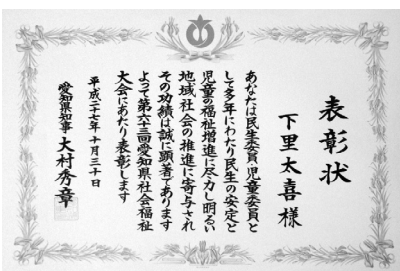 表彰状
下里太喜様
あなたは民生委員児童委員と
して多年にわたり民生の安定と
児童の福祉増進に尽力し明るい
地域社会の推進に寄与され
その功績は誠に顕著であります
よって第六十三回愛知県社会福祉
大会にあたり表彰します
平成二十七年十月三十日
愛知県知事 大村秀章